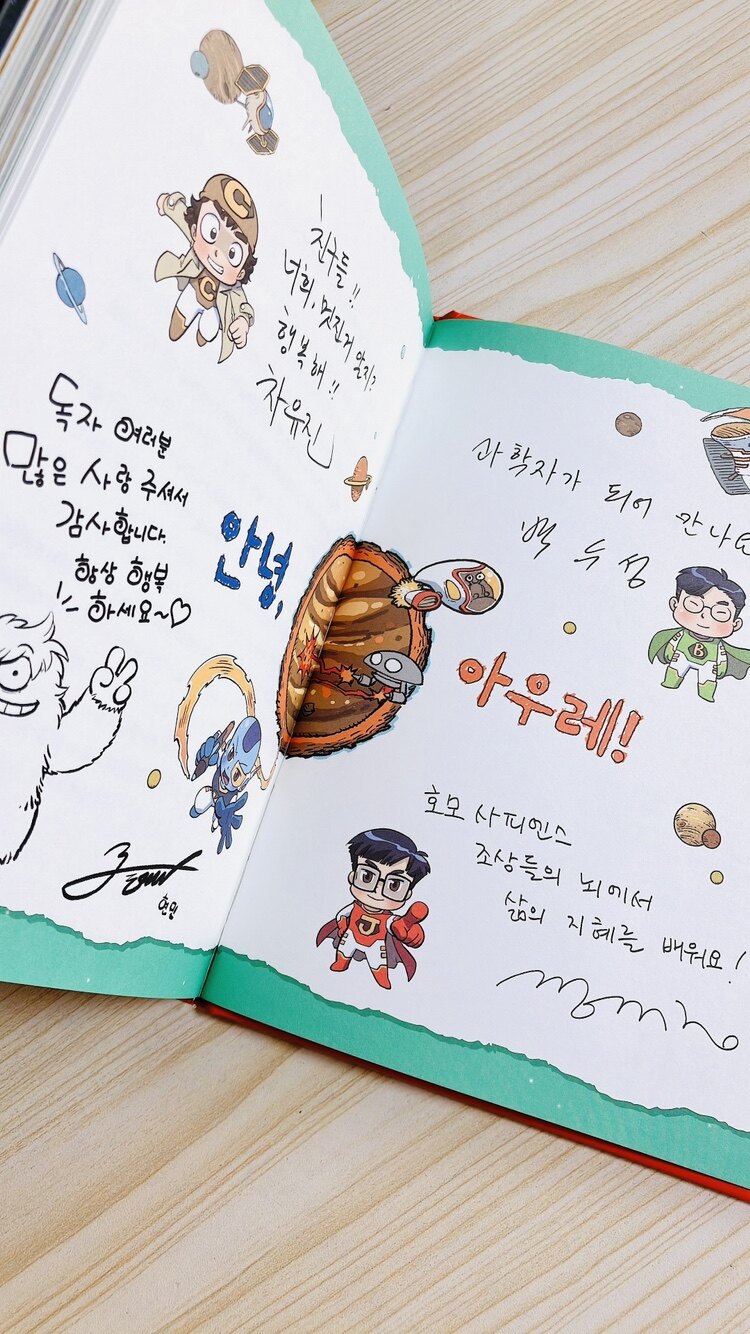 친구들!!
너희, 멋진거 알지?
행복해!!
차유진
독자 여러분
많은 사랑 주셔서
감사합니다.
항상 행복
하세요~♡
안녕,
C
C
현민
과학자가 되어 만나요
백두성
B
아우레!
호모 사피엔스
조상들의 뇌에서
삶의 지혜를 배워요!
J